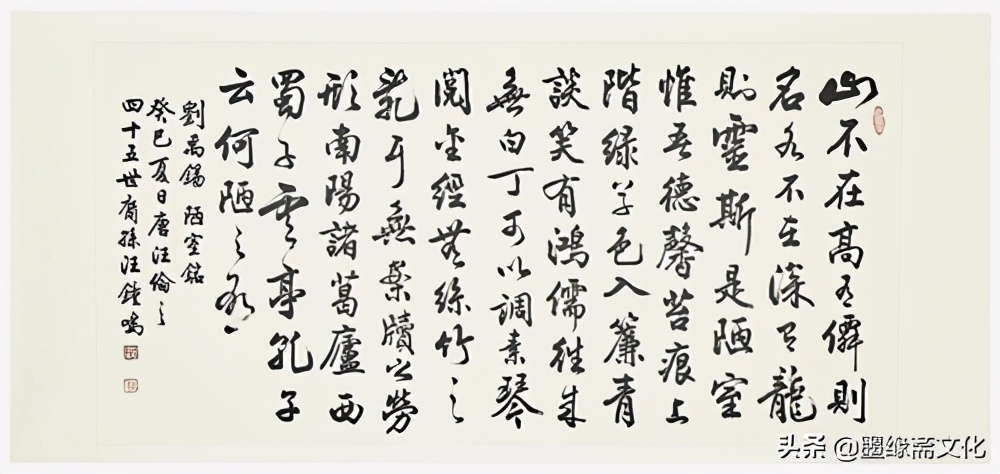 山不在高有僊則
名水不在深有龍
則靈斯是陋室
惟吾德馨苔痕上
階綠草色入簾青
談笑有鴻儒往來
無白丁可以調素琴
閱金經無絲竹之
亂耳無案牘之勞
形南陽諸葛廬西
蜀子雲亭孔子
云何陋之有
劉禹錫 陋室銘
癸巳夏日唐汪倫之
四十五世裔孫汪鐘鳴
头条 @墨缘斋文化